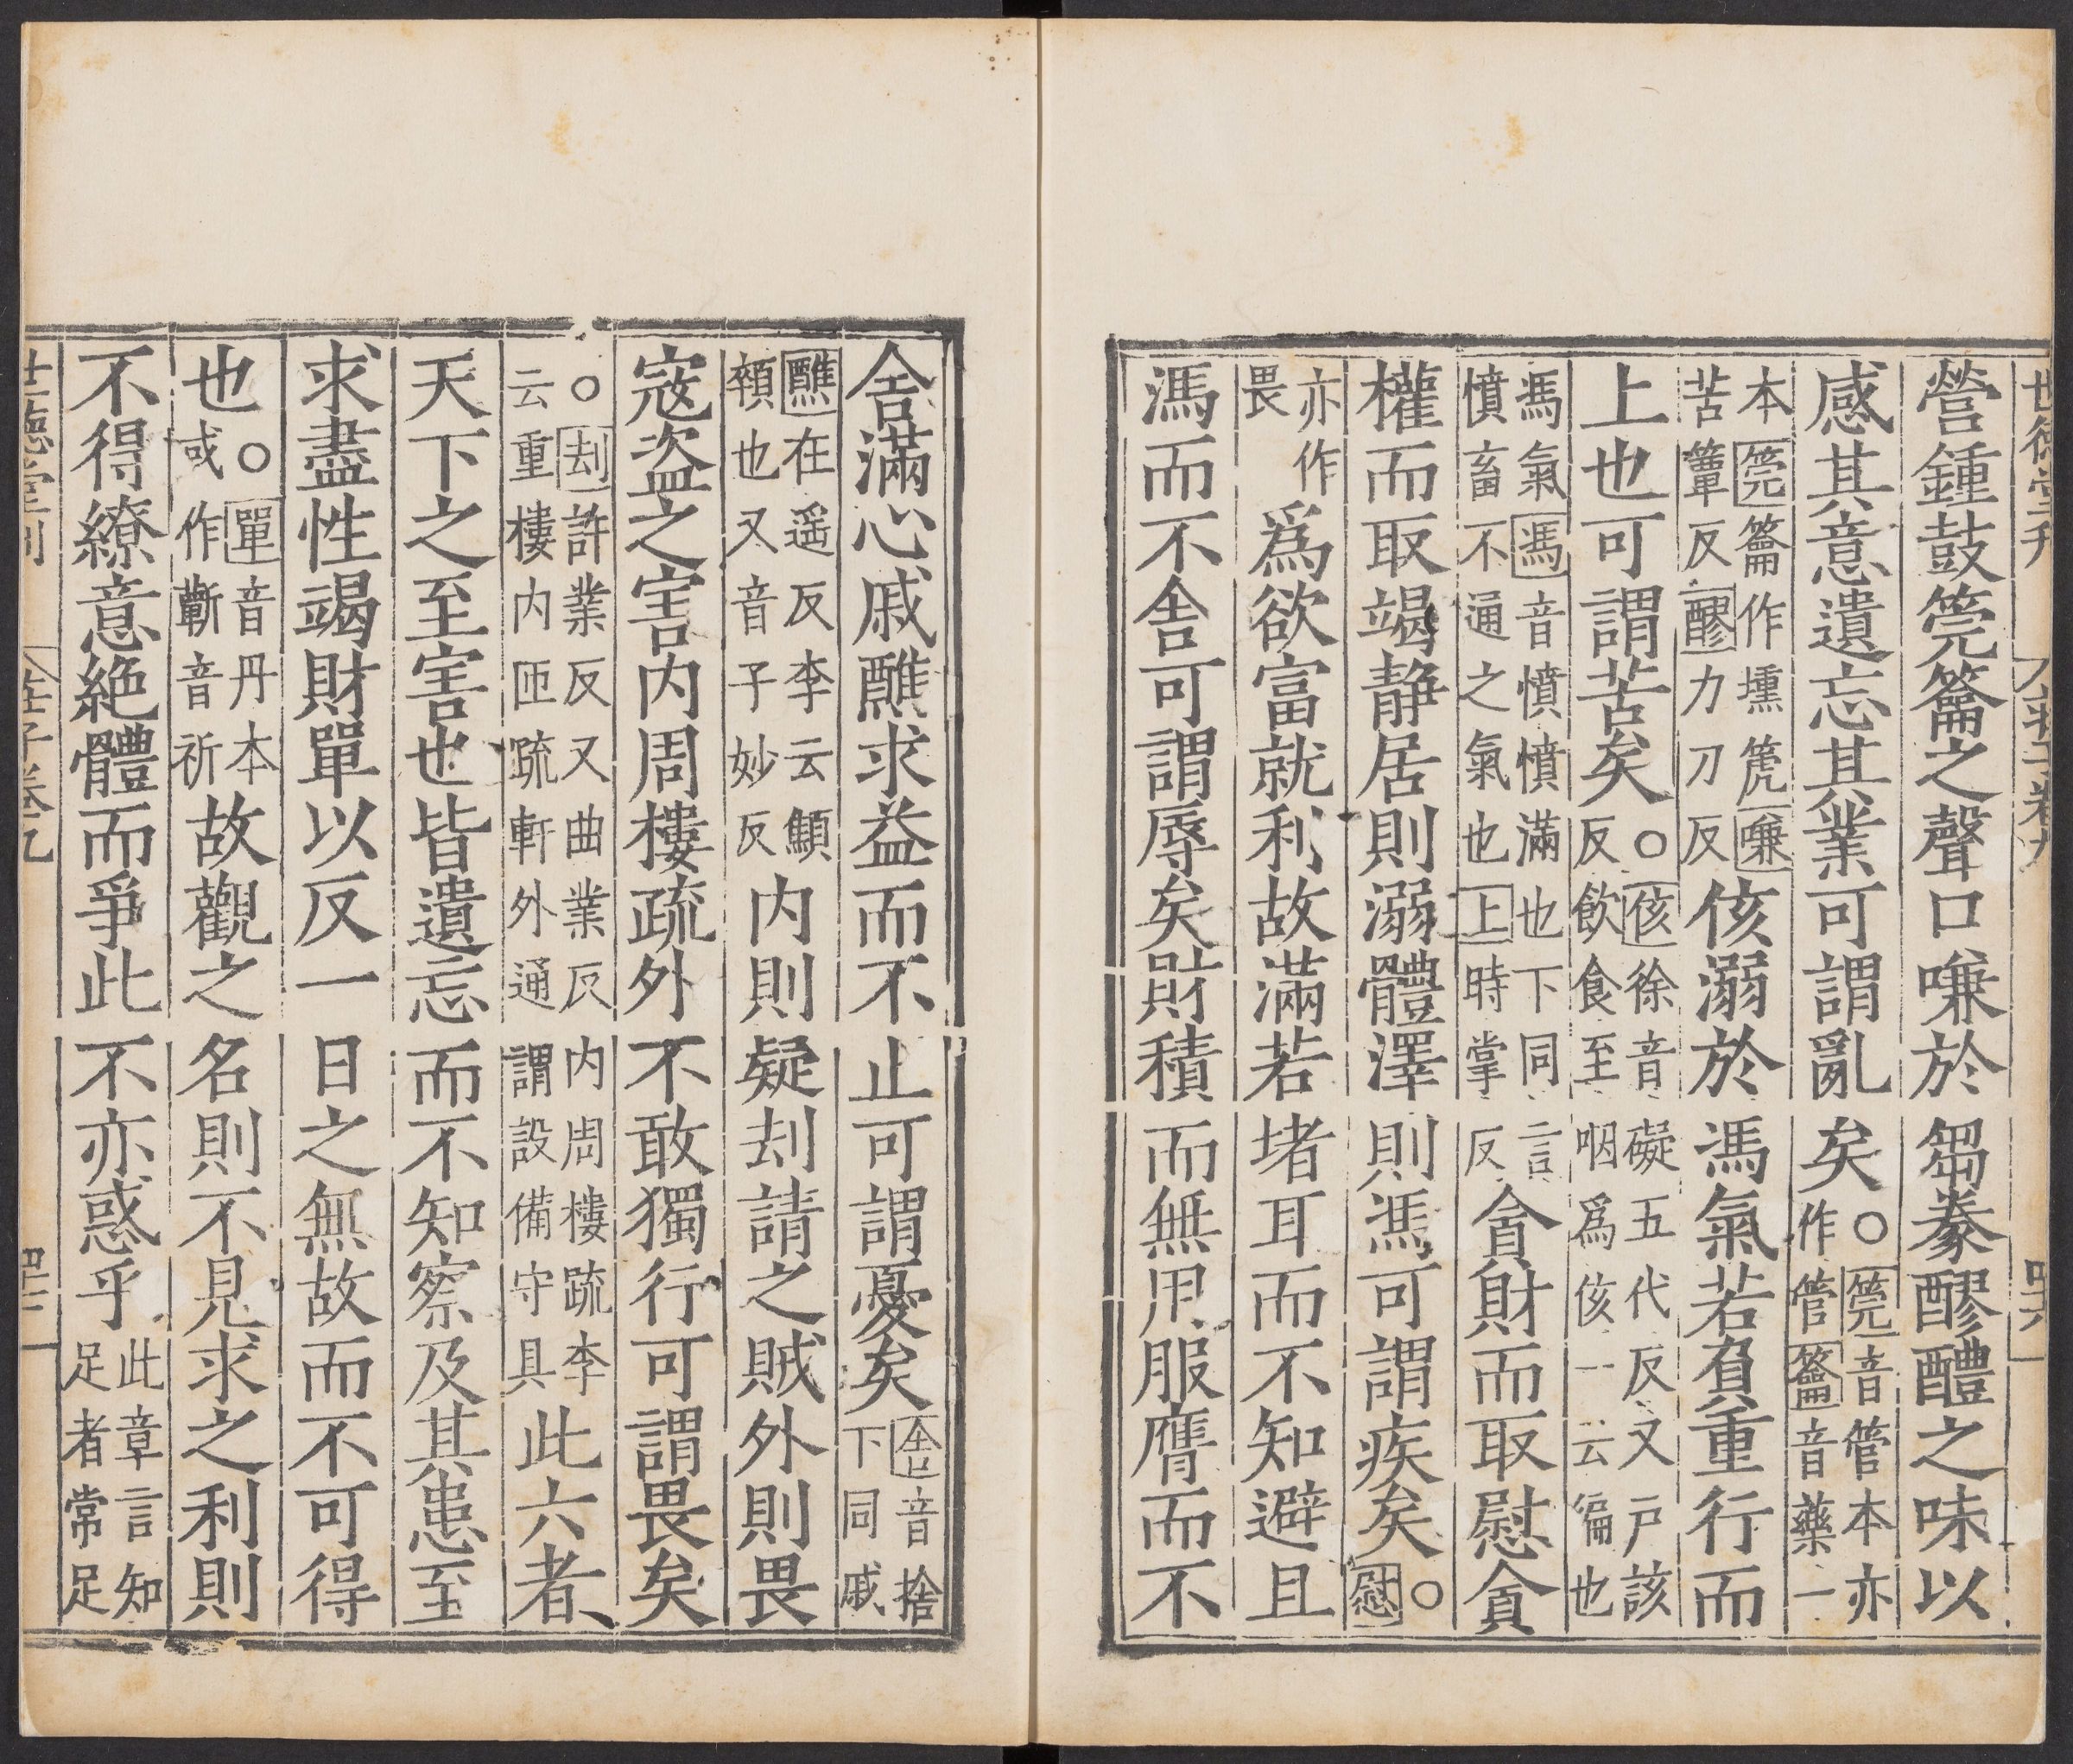 世德堂刊 莊子卷九 四十六
營鍾鼓筦籥之聲口嗛於芻豢醪醴之味以
感其意遺忘其業可謂亂矣○筦音管本亦作管籥音藥一
本筦籥作壎箎嗛苦簟反醪力刀反侅溺於馮氣若負重行而
上也可謂苦矣○侅徐音礙五代反又戶該反飲食至咽爲侅一云徧也
馮氣馮音憤憤滿也下同言憤畜不通之氣也上時掌反貪財而取慰貪
權而取竭静居則溺體澤則馮可謂疾矣○慰
亦作畏爲欲富就利故滿若堵耳而不知避且
馮而不舍可謂辱矣財積而無用服膺而不
舍滿心戚醮求益而不止可謂憂矣舍音捨下同戚
醮在遥反李云顦顇也又音子妙反内則疑刦請之賊外則畏
寇盗之害内周樓疏外不敢獨行可謂畏矣
○刦許業反又曲業反内周樓疏李云重樓内匝疏軒外通謂設備守具此六者、
天下之至害也皆遺忘而不知察及其患至
求盡性竭財單以反一日之無故而不可得
也○單音丹本或作蘄音祈故觀之名則不見求之利則
不得繚意絶體而爭此不亦惑乎此章言知足者常足
世德堂刊 莊子卷九